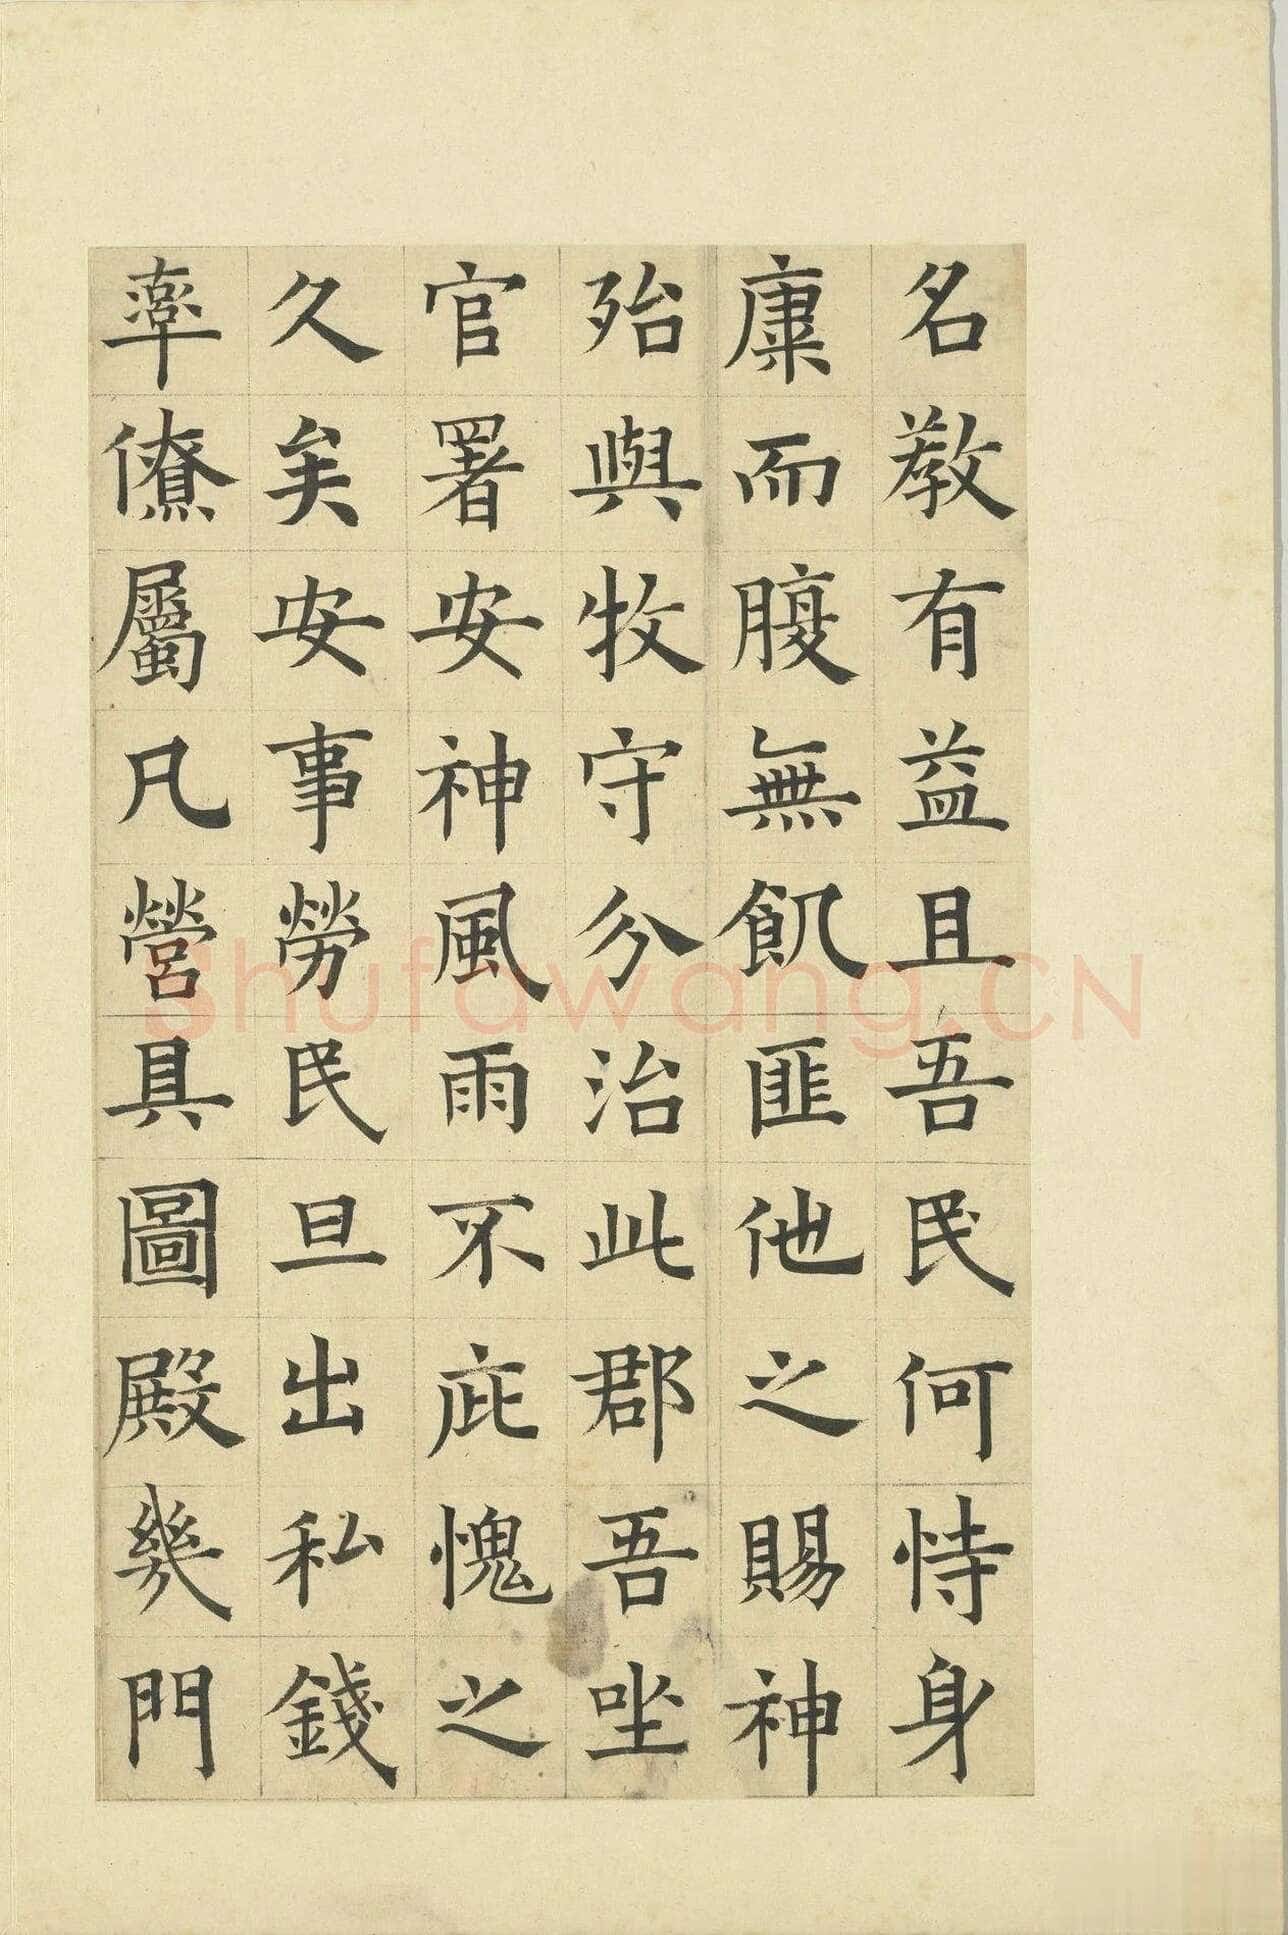 名教有益且吾民何恃身
康而腹無飢匪他之賜神
殆與牧守分治此郡吾坐
官署安神風雨不庇愧之
久矣安事勞民旦出私錢
率僚屬凡營具圖殿幾門
Shufawang.CN